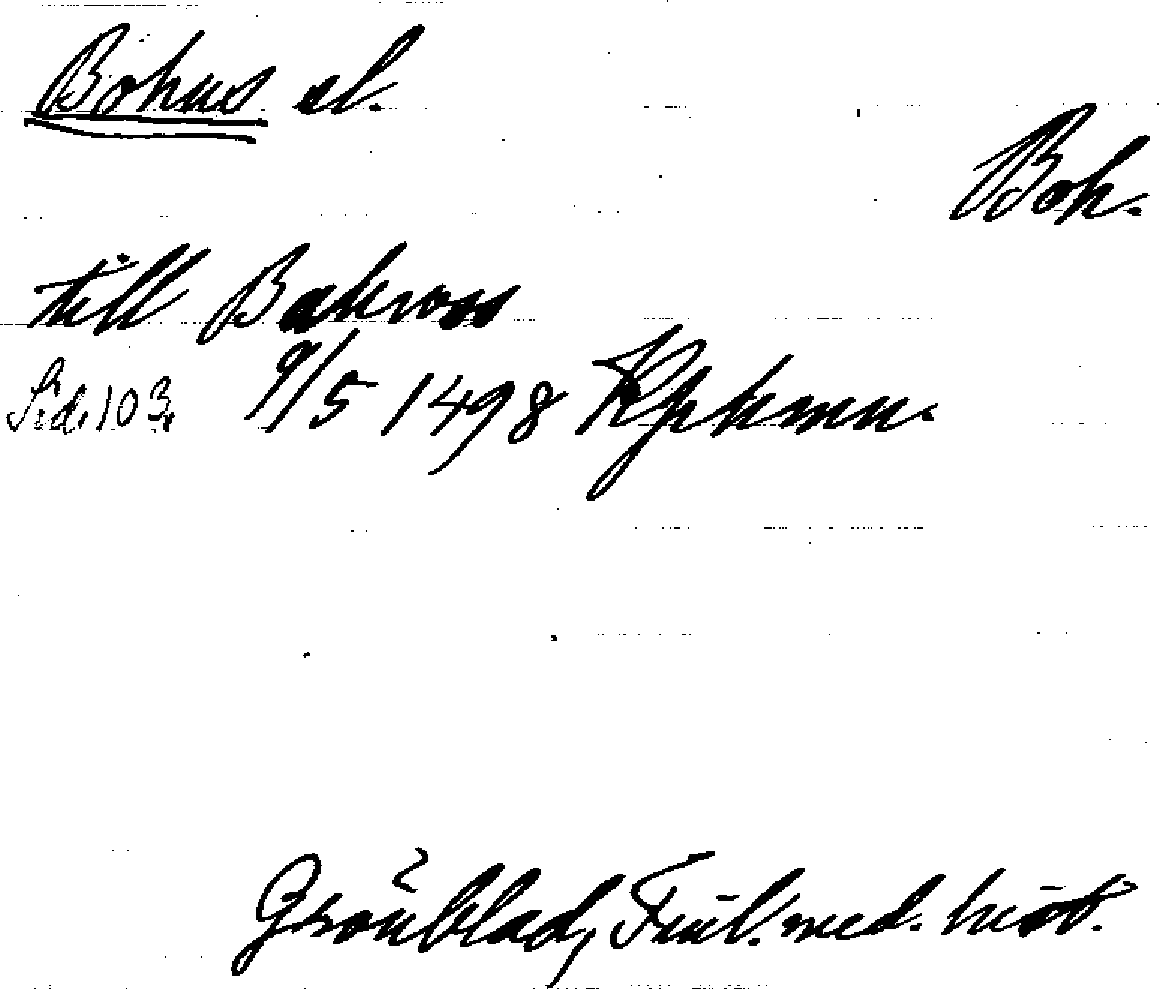 Bohus el.
Boh.
till Bakross
Sid. 103. 9/5 1498 Kphmn.
Grönblad, Finl. med. hist.